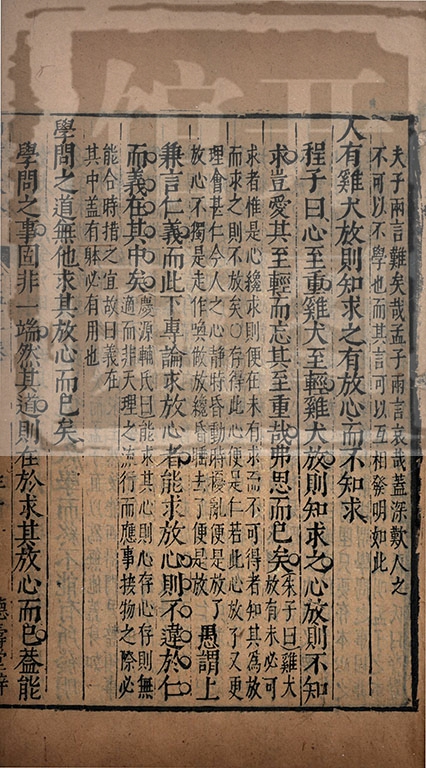 夫子兩言難矣哉孟子兩言哀哉蓋深歎人之
不可以不學也而其言可以互相發明如此
人有雞犬放則知求之有放心而不知求
程子曰心至重雞犬至輕雞犬放則知求之心放則不知
求豈愛其至輕而忘其至重哉弗思而已矣
朱子曰雞犬
放有未必可
求者惟是心纔求則便在未有求而不可得者知其為放
而求之則不放矣○存得此心便是仁若此心放了又更
理會甚仁今人之心靜時昏動時擾亂便是放了
放心不獨是走作喚做放纔昏睡去了便是放
愚謂上
兼言仁義而此下專論求放心者能求放心則不違於仁
而義在其中矣
慶源輔氏曰能求其心則心存心存則無
適而非天理之流行而應事接物之際必
能合時措之宜故曰義在
其中蓋有體必有用也
學問之道無他求其放心而已矣
學問之事固非一端然其道則在於求其放心而已蓋能
德壽堂梓